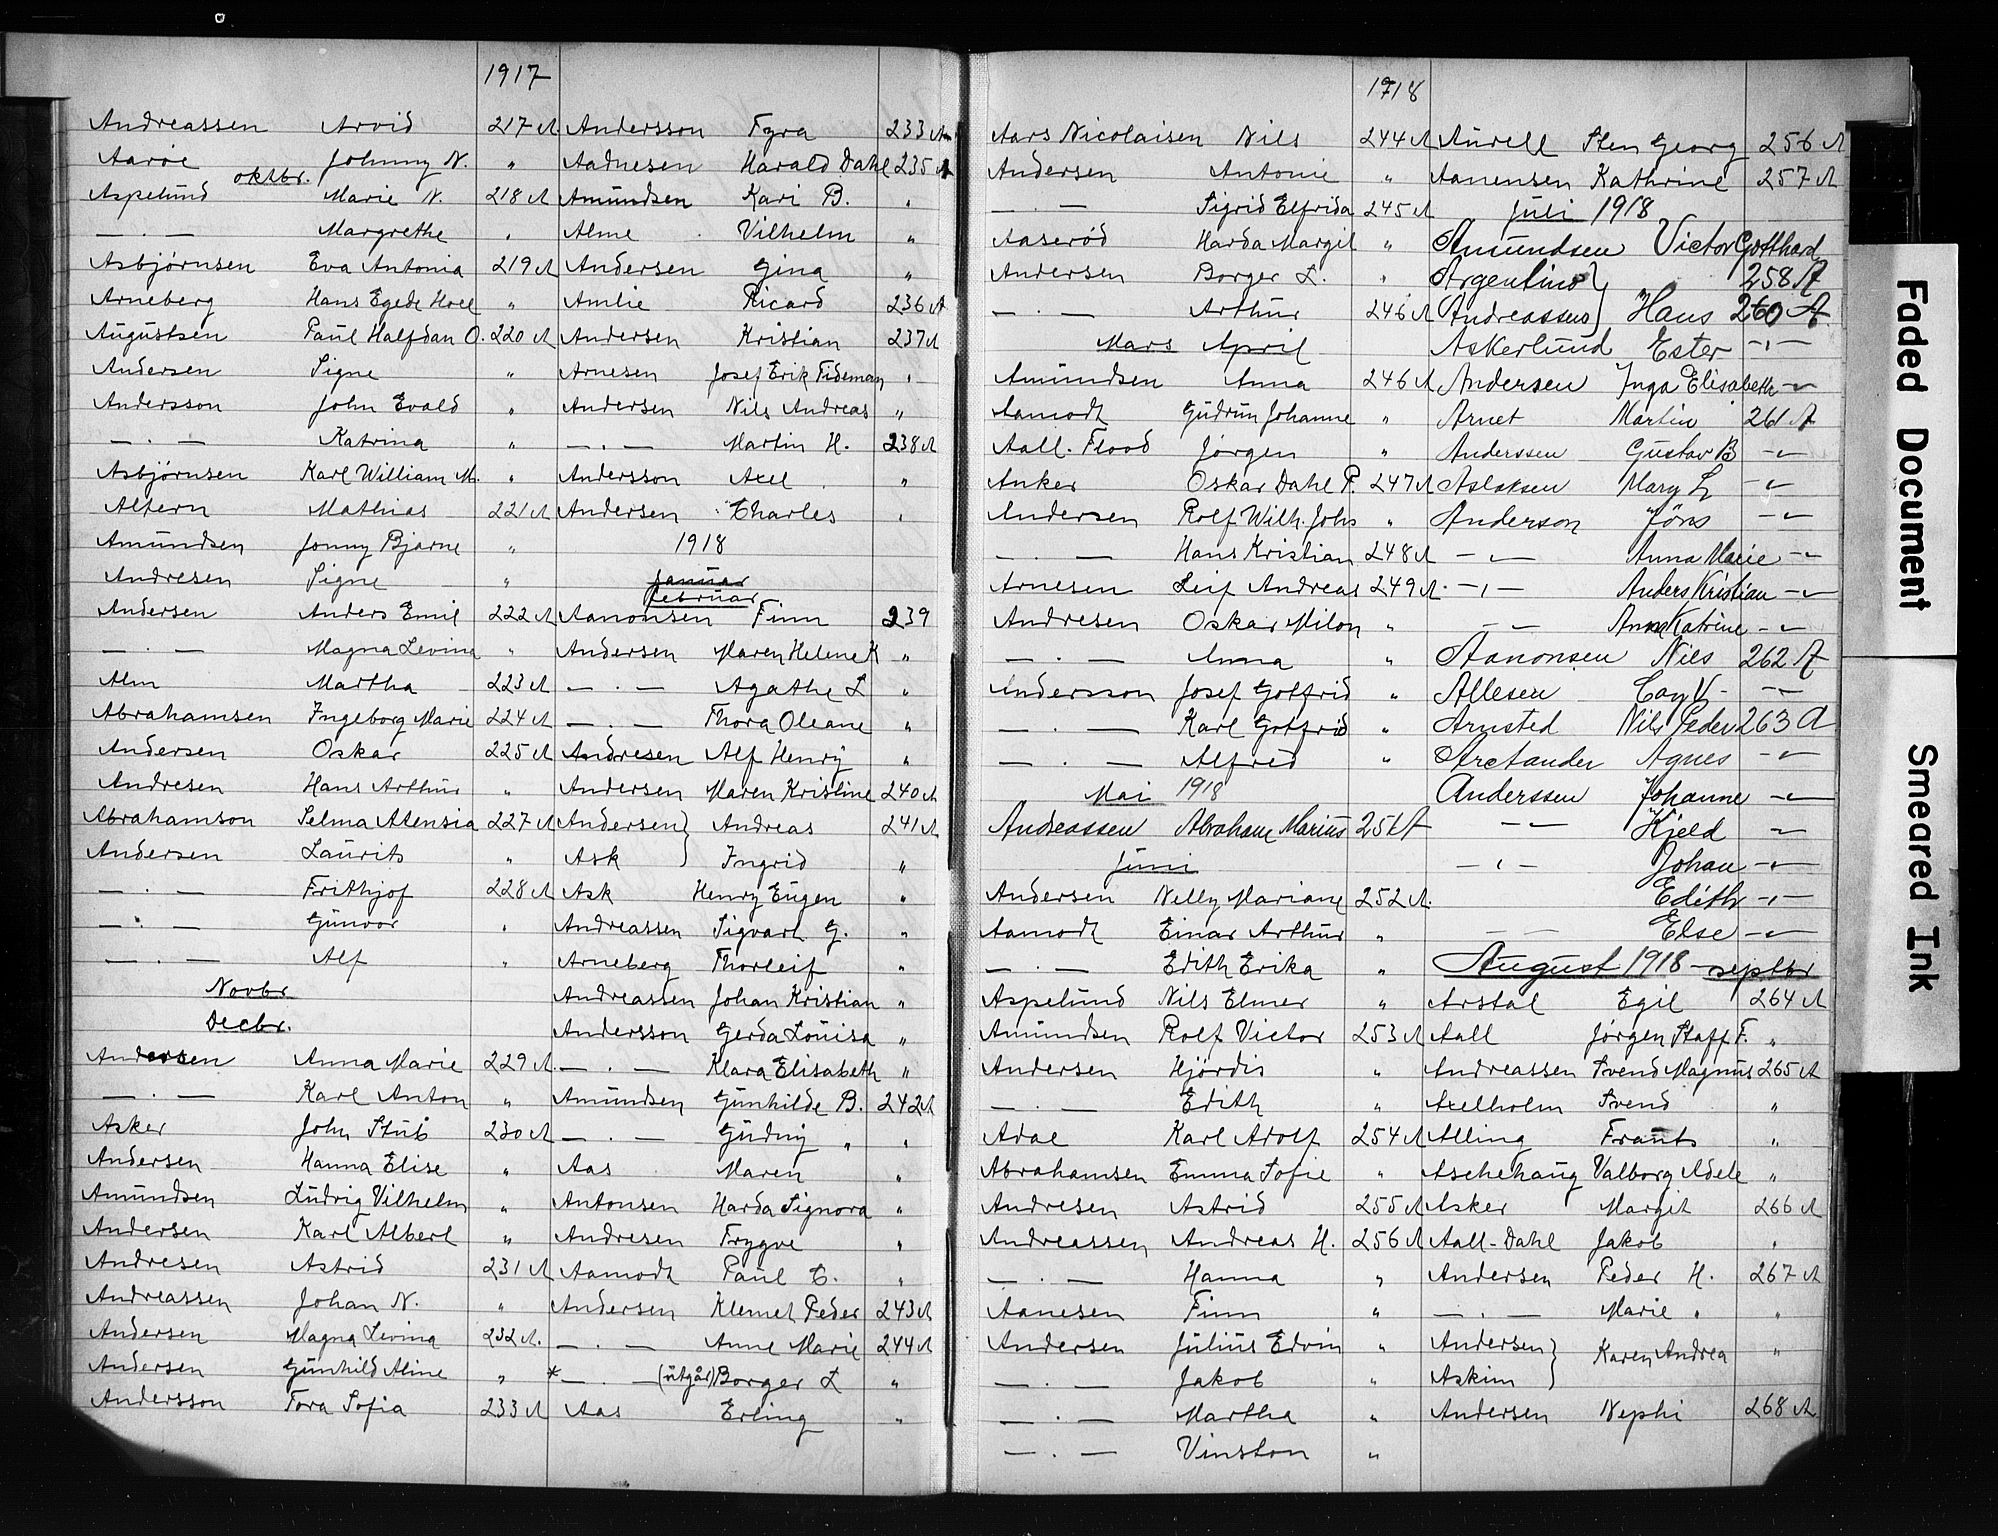 1917
Andreassen Arvid 217 A
Aarøe Johnny N. "
oktbr.
Aspelund Marie N. 218 A
— . — Margrethe "
Asbjørnsen Eva Antonia 219 A
Arneberg Hans Egede Hoel "
Augustsen Paul Halfdan O. 220 A
Andersen Signe "
Andersson John Evald "
— . — Katrina "
Asbjørnsen Karl William M. "
Altern Mathias 221 A
Amundsen Jonny Bjarne "
Andresen Signe "
Andersen Anders Emil 222 A
— . — Magna Levina "
Alm Martha 223 A
Abrahamsen Ingeborg Marie 224 A
Andersen Oskar 225 A
Andresen Hans Arthur "
Abrahamson Selma Alensia 227 A
Andersen Laurits "
— . — Frithjof 228 A
— " — Gunvor "
— . — Alf "
Novbr.
Decbr.
Andersen Anna Marie 229 A
— . — Karl Anton "
Asker John Stub 230 A
Andersen Hanna Elise "
Amundsen Ludvig Vilhelm "
Andersen Karl Albert "
Andresen Astrid 231 A
Andreassen Johan N. "
Andersen Magna Levina 232 A.
Andersen Gunhild Aline "
Andersson Tora Sofia 233 A
Andersson Tyra 233 A
Aadnesen Harald Dahl 235 A
Amundsen Kari B. "
Alme Vilhelm "
Andersen Gina "
Amlie Ricard 236 A
Andersen Kristian 237 A
Arnesen Josef Erik Tideman "
Andersen Nils Andreas "
— . — Martin H. 238 A
Andersson Axel "
Andersen Charles "
1918
Januar
Februar
Aanonsen Finn 239
Andersen Maren Helene K "
— . — Agathe L "
— . — Thora Oleane "
Andresen Alf Henry "
Andersen Maren Kristine 240 A
Andersen } Andreas 241 A
Ask } Ingrid "
Ask Henry Eugen "
Andreassen Sigvart G. "
Arneberg Thorleif "
Andreassen Johan Kristian "
Andersson Gerda Louisa "
— . — Klara Elisabeth "
Amundsen Gunhilde B. 242 A
— . — Gudny " "
Aas Maren "
Antonsen Harda Signora "
Andresen Trygve "
Aamodt Paul C. "
Andersen Klemet Peder 243 A
— . — Anne Marie 244 A
* — . — (utgår) Borger L "
Aas Erling "
1918
Aars Nicolaisen Nils 244 A
Andersen Antonie "
— . — Sigrid Elfrida 245 A
Aaserød Harda Margit "
Andersen Borger L. "
— . — Arthur 246 A
Mars April
Amundsen Anna 246 A
Aamodt Gudrun Johanne "
Aall. Flood Jørgen "
Anker Oskar Dahl P. 247 A
Andersen Rolf Wilh. Johs "
— . — Hans Kristian 248 A
Arnesen Leif Andreas 249 A
Andresen Oskar Milon "
— . — Anna "
Andersson Josef Gotfrid "
— . — Karl Gotfrid "
— . — Alfred "
Mai 1918
Andreassen Abraham Marius 251 A
Juni
Andersen Nelly Mariane 252 A.
Aamodt Einar Arthur "
— . — Edith Erika "
Aspelund Nils Elmer "
Amundsen Rolf Victor 253 A
Andersen Hjördis "
— . — Edith "
Adal Karl Adolf 254 A
Abrahamsen Emma Sofie "
Andresen Astrid 255 A
Andreassen Andreas H. 256 A
— . — Hanna "
Aanesen Finn "
Andersen Julius Edvin "
— . — Jakob "
— . — Martha "
— . — Vinston "
Aurell Sten Georg 256 A
Aanensen Kathrine 257 A
Juli 1918
Amundsen Victor Gotthard
Argentino } " 258 A
Andreassen } Hans 260 A
Askerlund Ester — " —
Andersen Inga Elisabeth — " —
Arnet Martin 261 A
Anderssen Gustav B — " —
Aslaksen Mary L — " —
Anderson Jöns — " —
— " — Anna Marie — " —
— " — Anders Kristian — " —
— " — Anna Katrine — " —
Aanonsen Nils 262 A
Allesen Cay V. — " —
Arnsted Nils Peder 263 A
Arctander Agnes — " —
Anderssen Johanne — " —
— " — Kjeld — " —
— " — Johan — " —
Edith — " —
— " — Else — " —
August 1918 - septbr
Arstal Egil 264 A
Aall Jørgen Staff F. "
Andreassen Svend Magnus 265 A
Axelholm Svend "
Alling Frants "
Aschehaug Valborg Adele "
Asker Margit 266 A
Aall-Dahl Jakob "
Andersen Peder H. 267 A
— . — Marie " "
Andersen } Karen Andrea "
Askim }
Andersen Nephi 268 A
Faded Document
Smeared Ink